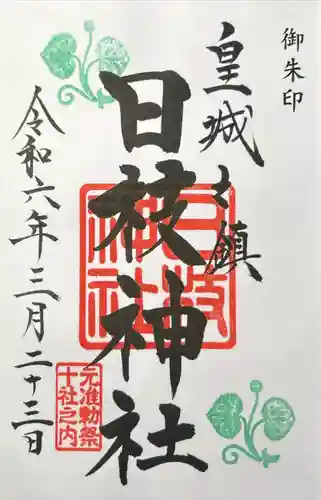 御朱印
皇城之鎮
日枝神社
日枝神社
元准勅祭
十社之内
令和六年三月二十三日